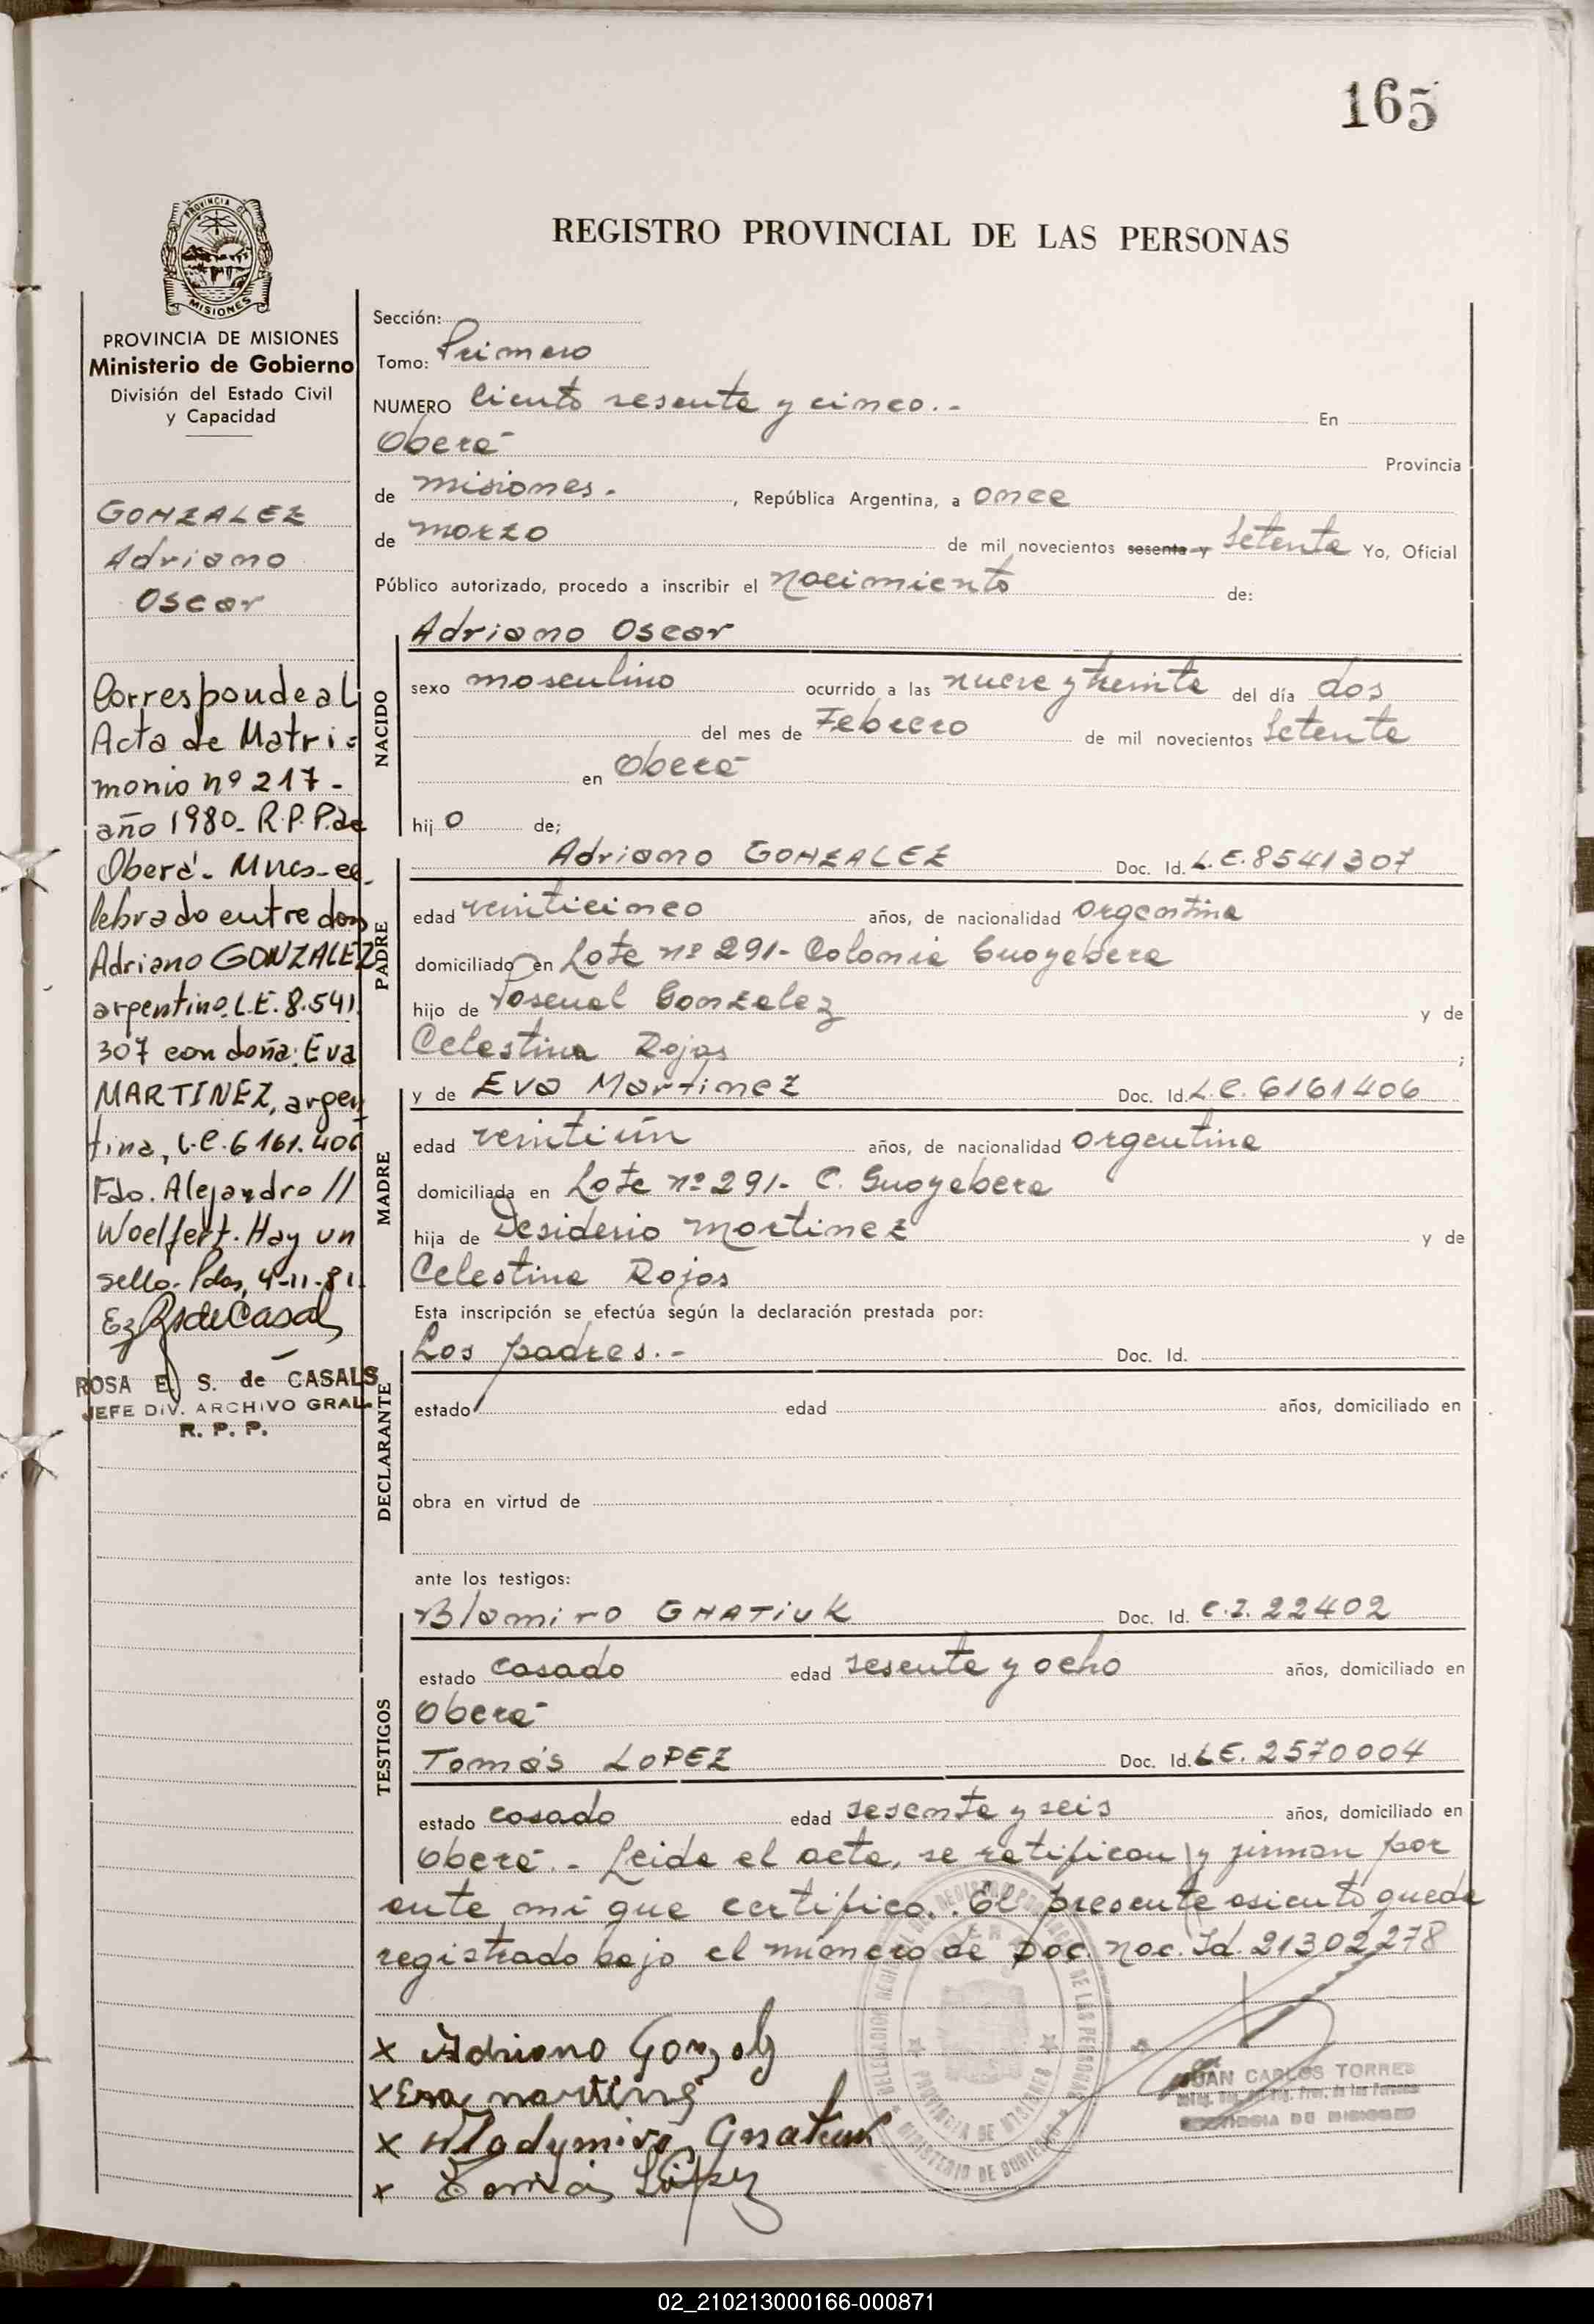 165
REGISTRO PROVINCIAL DE LAS PERSONAS
PROVINCIA DE
MISIONES
PROVINCIA DE MISIONES
Ministerio de Gobierno
División del Estado Civil
y Capacidad
GONZALEZ
Adriano
Oscar
Corresponde al
Acta de Matri=
monio nº 217-
año 1980- R.P.P. de
Oberá- Mnes- ce_
lebrado entre don
Adriano GONZALEZ
argentino, L.E. 8.541.
307 con doña: Eva
MARTINEZ, argen
tina, L.C. 6 161.406
Fdo. Alejandro //
Woelfert. Hay un
sello. Pdas, 4-11-81.
ROSA E. S. de CASALS
JEFE DIV. ARCHIVO GRAL.
R. P. P.
Sección:
Tomo: Primero
NUMERO Ciento sesenta y cinco.- En
Oberá Provincia
de Misiones. , República Argentina, a once
de marzo de mil novecientos sesenta y Setenta Yo, Oficial
Público autorizado, procedo a inscribir el nacimiento de:
NACIDO
Adriano Oscar
sexo masculino ocurrido a las nueve y treinta del día dos
del mes de Febrero de mil novecientos Setenta
en Oberá
hij o de;
PADRE
Adriano GONZALEZ Doc. Id. L.E. 8541307
edad veinticinco años, de nacionalidad argentina
domiciliado en Lote nº 291- Colonia Guayabera
hijo de Pascual Gonzalez y de
Celestina Rojas ;
MADRE
y de Eva Martinez Doc. Id. L.C. 6161406
edad veintiún años, de nacionalidad argentina
domiciliada en Lote nº 291- C. Guayabera
hija de Desiderio Martinez y de
Celestina Rojas
Esta inscripción se efectúa según la declaración prestada por:
DECLARANTE
Los padres.- Doc. Id.
estado edad años, domiciliado en
obra en virtud de
ante los testigos:
TESTIGOS
Blamiro GNATIUK Doc. Id. C.I. 22402
estado casado edad sesenta y ocho años, domiciliado en
Oberá
Tomás LOPEZ Doc. Id. L.E. 2570004
estado casado edad sesenta y seis años, domiciliado en
Oberá.- Leida el acta, se ratifican y firman por
ante mí que certifico. El presente asiento queda
registrado bajo el número de Doc. Nac. Id. 21302278
x Adriano Gonzalez
x Eva martines
x Wladymiro Gnatiuk
x Tomás López
PROVINCIA DE MISIONES
MINISTERIO DE GOBIERNO
JUAN CARLOS TORRES
PROVINCIA DE MISIONES
02_210213000166-000871